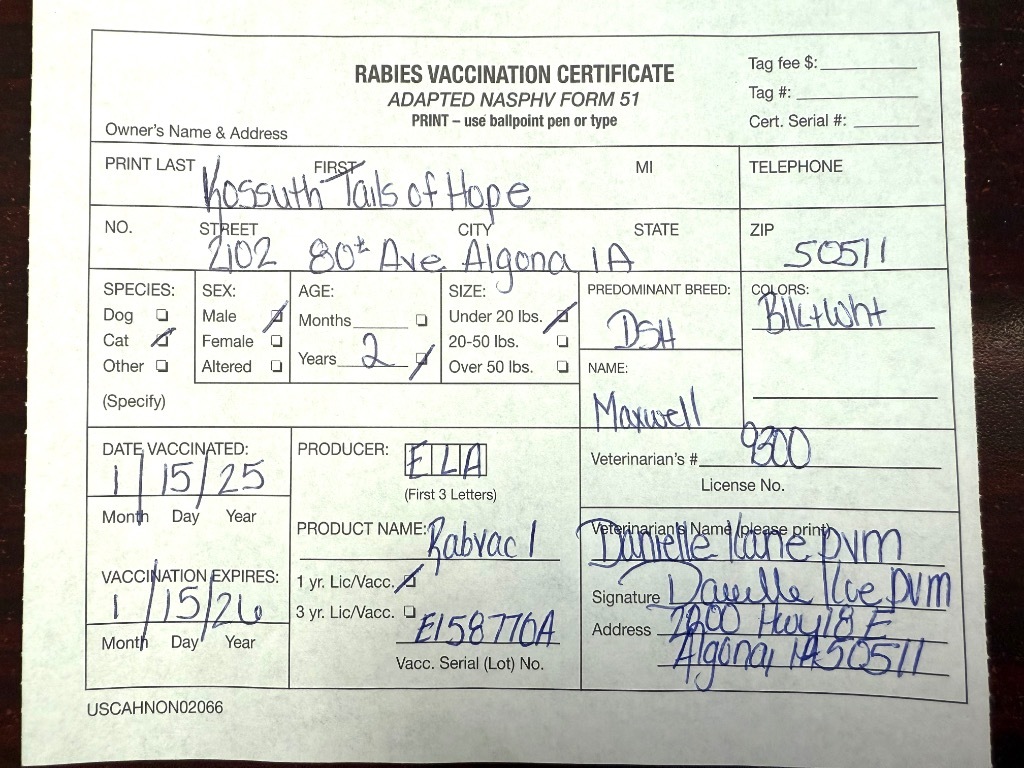 RABIES VACCINATION CERTIFICATE
ADAPTED NASPHV FORM 51
PRINT – use ballpoint pen or type
Tag fee $:
Tag #:
Cert. Serial #:
Owner's Name & Address
PRINT LAST FIRST MI TELEPHONE
Kossuth Tails of Hope
NO. STREET CITY STATE ZIP
2102 80th Ave Algona IA 50511
SPECIES:
Dog
Cat
Other
(Specify)
SEX:
Male
Female
Altered
AGE:
Months
Years 2
SIZE:
Under 20 lbs.
20-50 lbs.
Over 50 lbs.
PREDOMINANT BREED:
DSH
COLORS:
Blk+Wht
NAME:
Maxwell
DATE VACCINATED:
1/15/25
Month Day Year
VACCINATION EXPIRES:
1/15/26
Month Day Year
PRODUCER: ELA
(First 3 Letters)
PRODUCT NAME: Rabvac 1
1 yr. Lic/Vacc.
3 yr. Lic/Vacc.
E158770A
Vacc. Serial (Lot) No.
Veterinarian's # 9300
License No.
Veterinarian's Name (please print)
Danielle Kane DVM
Signature Danielle DVM
Address 2800 Hwy 18 E
Algona, IA 50511
USCAHNON02066